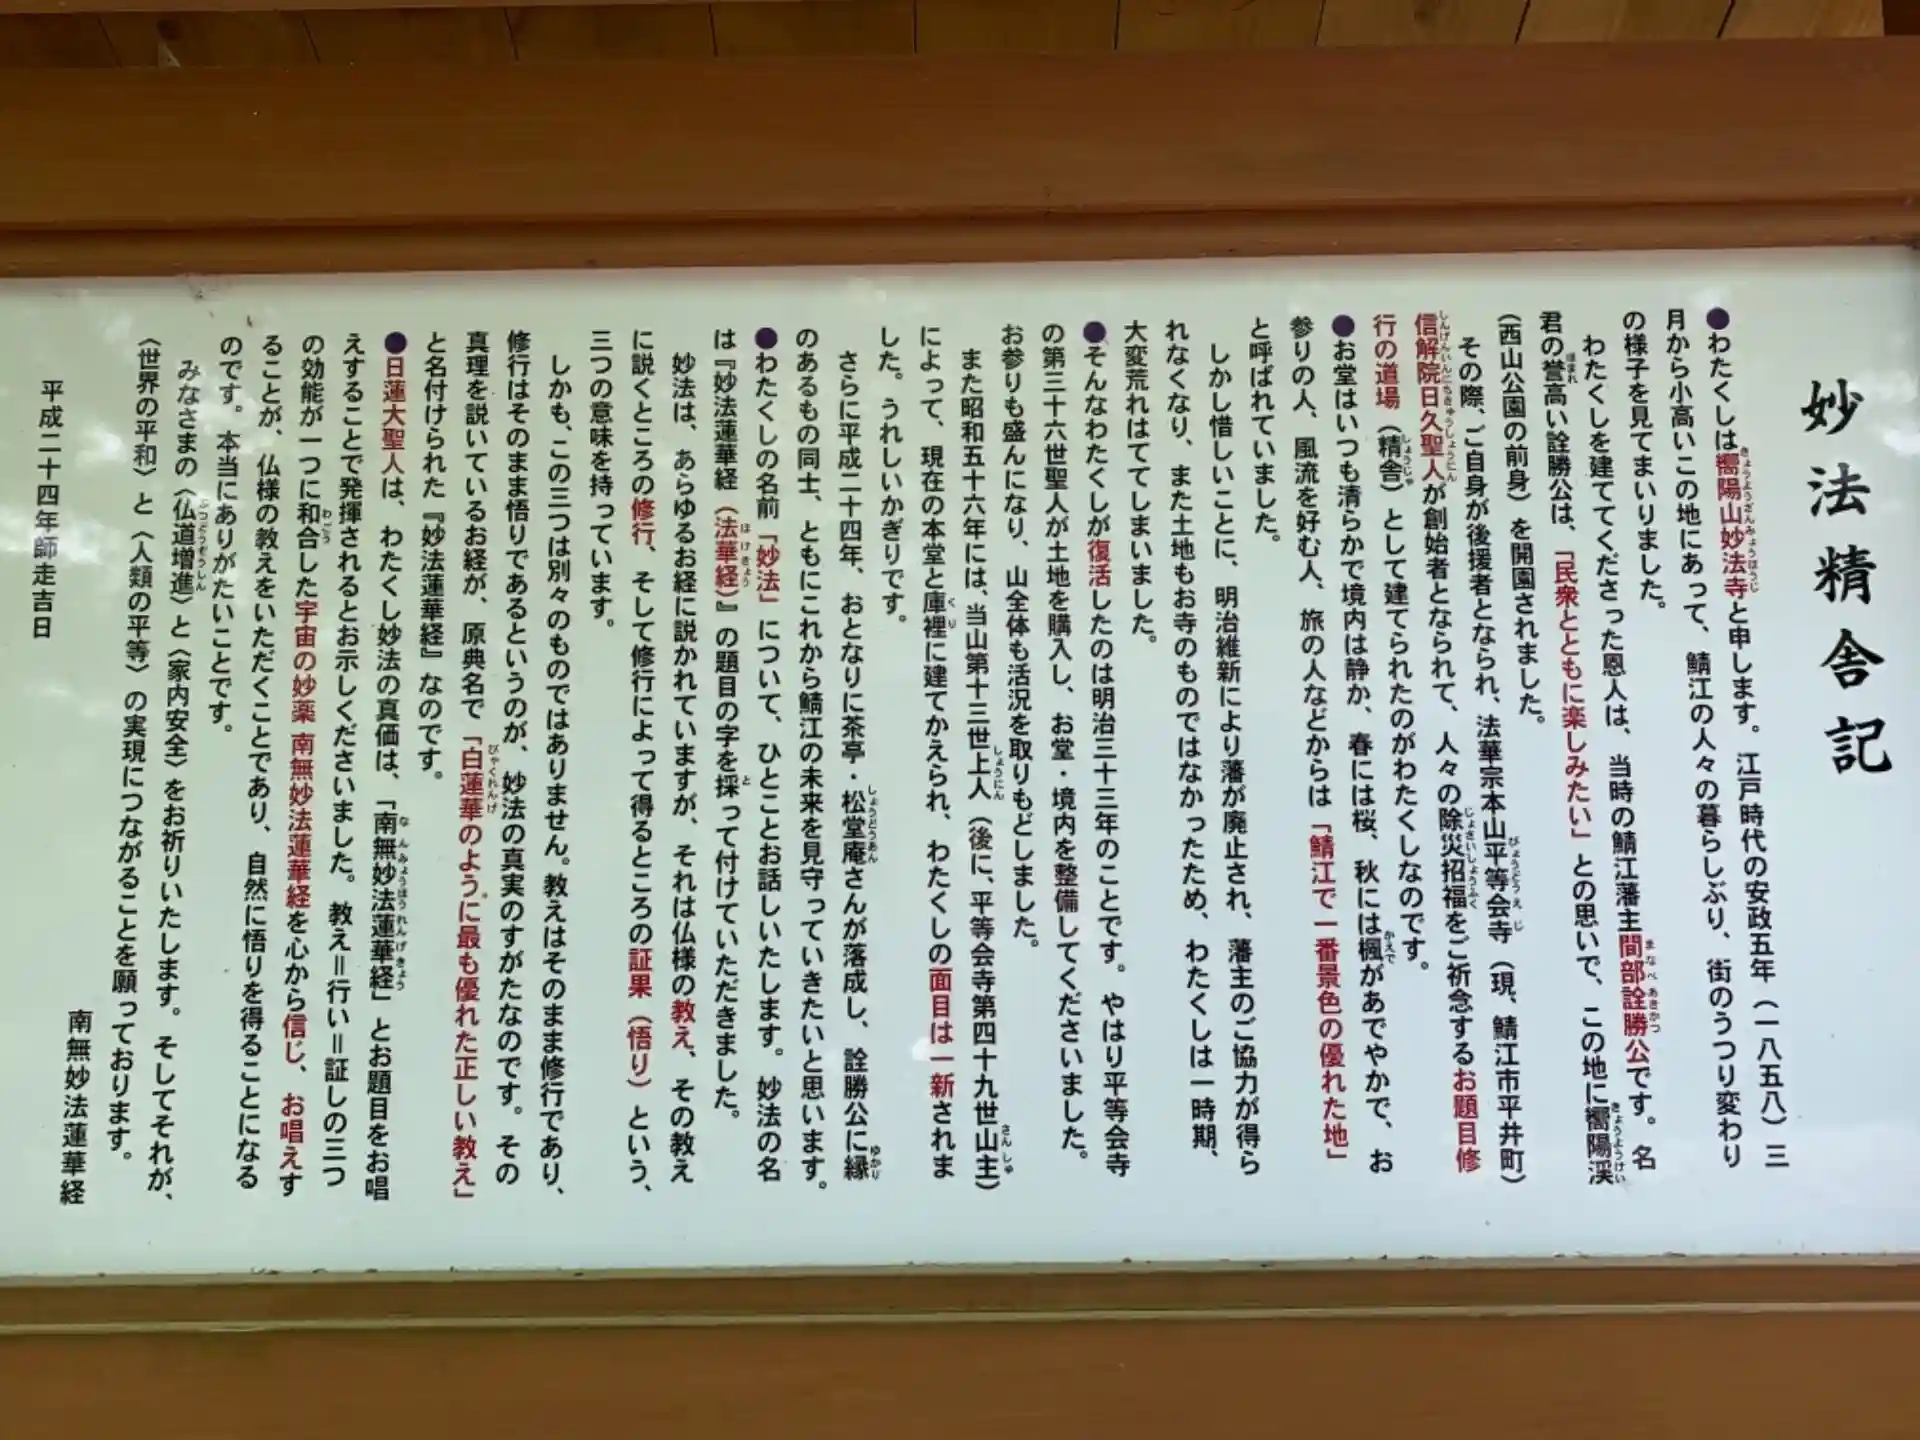 妙法精舎記
●わたくしは嚮陽山妙法寺と申します。江戸時代の安政五年（一八五八）三
月から小高いこの地にあって、鯖江の人々の暮らしぶり、街のうつり変わり
の様子を見てまいりました。
わたくしを建ててくださった恩人は、当時の鯖江藩主間部詮勝公です。名
君の誉高い詮勝公は、「民衆とともに楽しみたい」との思いで、この地に嚮陽渓
（西山公園の前身）を開園されました。
その際、ご自身が後援者となられ、法華宗本山平等会寺（現、鯖江市平井町）
信解院日久聖人が創始者となられて、人々の除災招福をご祈念するお題目修
行の道場（精舎）として建てられたのがわたくしなのです。
●お堂はいつも清らかで境内は静か、春には桜、秋には楓があでやかで、お
参りの人、風流を好む人、旅の人などからは「鯖江で一番景色の優れた地」
と呼ばれていました。
しかし惜しいことに、明治維新により藩が廃止され、藩主のご協力が得ら
れなくなり、また土地もお寺のものではなかったため、わたくしは一時期、
大変荒れはててしまいました。
●そんなわたくしが復活したのは明治三十三年のことです。やはり平等会寺
の第三十六世聖人が土地を購入し、お堂・境内を整備してくださいました。
お参りも盛んになり、山全体も活況を取りもどしました。
また昭和五十六年には、当山第十三世上人（後に、平等会寺第四十九世山主）
によって、現在の本堂と庫裡に建てかえられ、わたくしの面目は一新されま
した。うれしいかぎりです。
さらに平成二十四年、おとなりに茶亭・松堂庵さんが落成し、詮勝公に縁
のあるもの同士、ともにこれから鯖江の未来を見守っていきたいと思います。
●わたくしの名前「妙法」について、ひとことお話しいたします。妙法の名
は『妙法蓮華経（法華経）』の題目の字を採って付けていただきました。
妙法は、あらゆるお経に説かれていますが、それは仏様の教え、その教え
に説くところの修行、そして修行によって得るところの証果（悟り）という、
三つの意味を持っています。
しかも、この三つは別々のものではありません。教えはそのまま修行であり、
修行はそのまま悟りであるというのが、妙法の真実のすがたなのです。その
真理を説いているお経が、原典名で「白蓮華のように最も優れた正しい教え」
と名付けられた『妙法蓮華経』なのです。
●日蓮大聖人は、わたくし妙法の真価は、「南無妙法蓮華経」とお題目をお唱
えすることで発揮されるとお示しくださいました。教え＝行い＝証しの三つ
の効能が一つに和合した宇宙の妙薬 南無妙法蓮華経を心から信じ、お唱えす
ることが、仏様の教えをいただくことであり、自然に悟りを得ることになる
のです。本当にありがたいことです。
みなさまの〈仏道増進〉と〈家内安全〉をお祈りいたします。そしてそれが、
〈世界の平和〉と〈人類の平等〉の実現につながることを願っております。
南無妙法蓮華経
平成二十四年師走吉日